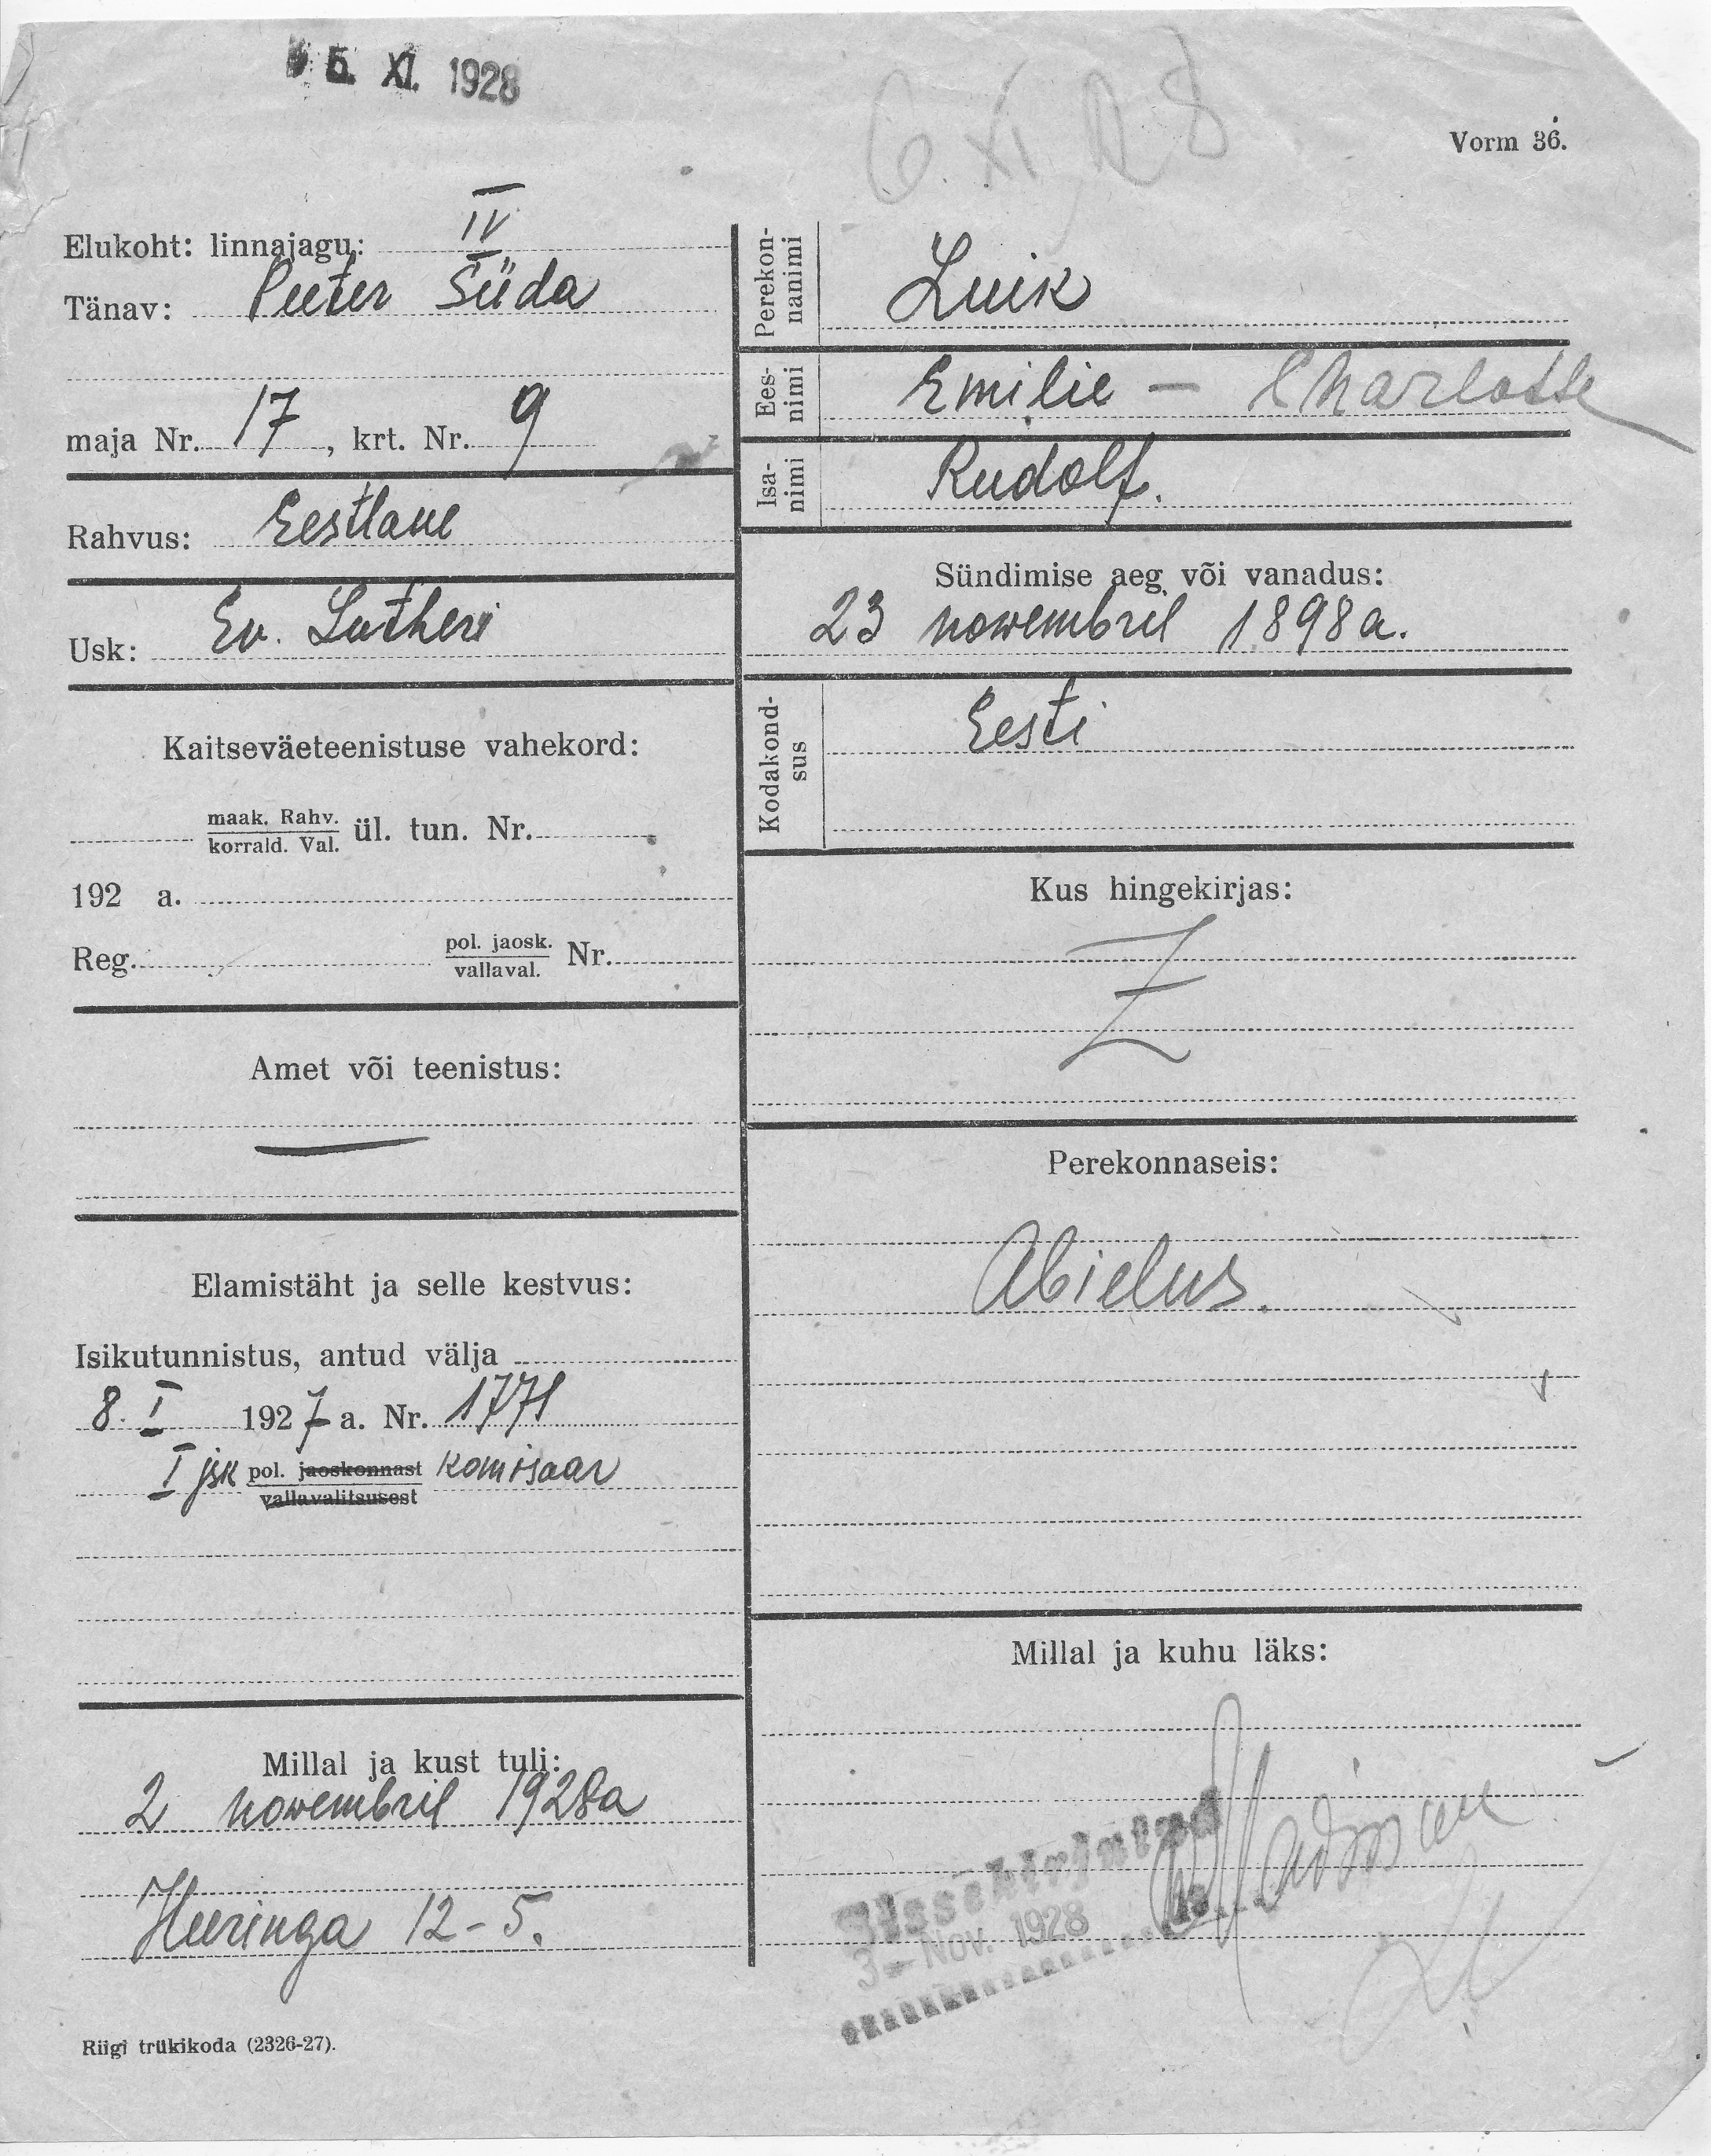 5. XI. 1928
6. XI 28
Vorm 36.
Elukoht: linnajagu: IV
Tänav: Peeter Süda
maja Nr. 17, krt. Nr. 9
Rahvus: Eestlane
Usk: Ev. Lutheri
Kaitseväeteenistuse vahekord:
maak. Rahv.
korrald. Val. ül. tun. Nr.
192 a.
Reg. pol. jaosk.
vallaval. Nr.
Amet või teenistus:
Elamistäht ja selle kestvus:
Isikutunnistus, antud välja
8. I 1927 a. Nr. 1771
I jsk pol. jaoskonnast komisaar
vallavalitsusest
Millal ja kust tuli:
2 nowembril 1928a
Heeringa 12-5.
Riigi trükikoda (2326-27).
Perekon-
nanimi Luik
Ees-
nimi Emilie - Charlotte
Isa-
nimi Rudolf.
Sündimise aeg või vanadus:
23 nowembril 1898a.
Kodakond-
sus Eesti
Kus hingekirjas:
Z
Perekonnaseis:
Abielus.
Millal ja kuhu läks:
Sissekirjutad
3 - Nov. 1928